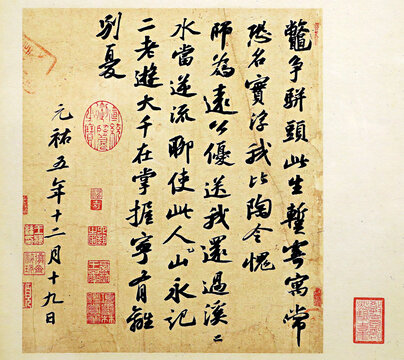 鼇争駢頭此生蹔寄寓常
恐名實浮我比陶令愧
師為遠公優送我還過溪〻
水當逆流聊使此人山永記
二老遊大千在掌握寧有離
別憂
元祐五年十二月十九日